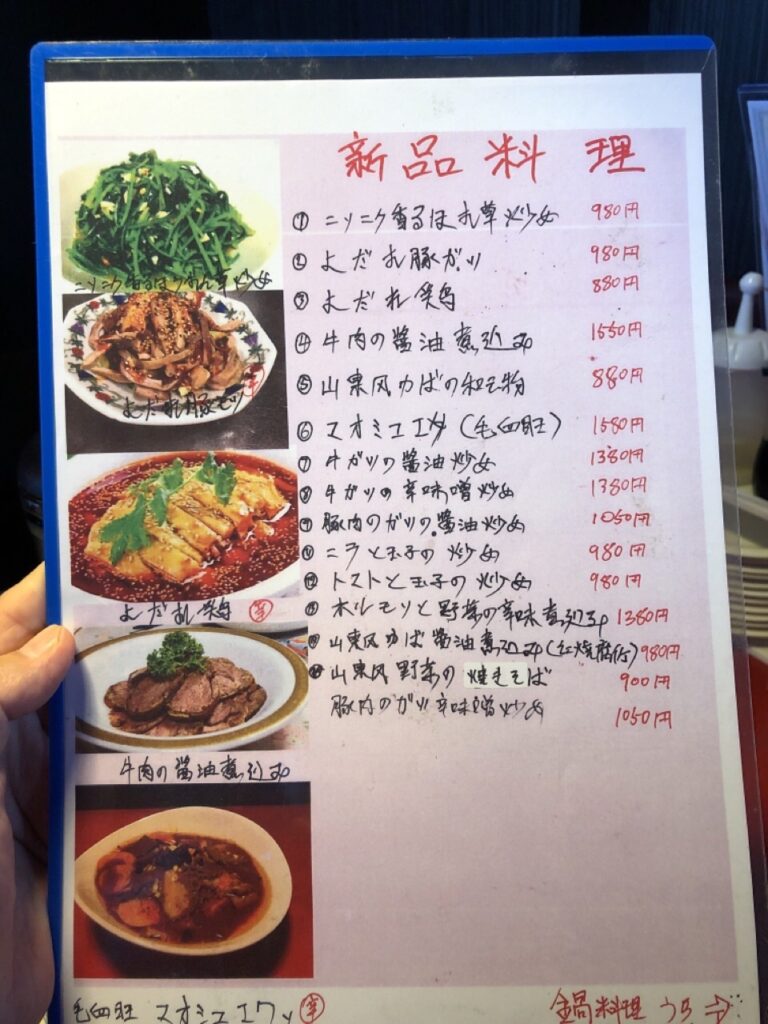 新品料理
① ニンニク香るほれ草炒め 980円
② よだれ豚ガツ 980円
③ よだれ鶏 880円
④ 牛肉の醤油煮込み 1550円
⑤ 山東风ゆばの和え物 880円
⑥ マオシュエ (毛血旺) 1580円
⑦ 牛ガツの醤油炒め 1380円
⑧ 牛ガツの辛味噌炒め 1380円
⑨ 豚肉のガツの醤油炒め 1050円
ニラと玉子の炒め 980円
トマトと玉子の炒め 980円
ホルモンと野菜の辛味煮込み 1380円
山東风ゆば醤油煮込み(红烧腐竹) 980円
山東风野菜の焼きそば 900円
豚肉のガツ辛味噌炒め 1050円
ニンニク香るほうれん草炒め
よだれ豚モツ 辛
よだれ鶏 辛
牛肉の醤油煮込み
毛血旺 マオシュエワン 辛
鍋料理 うら⇒